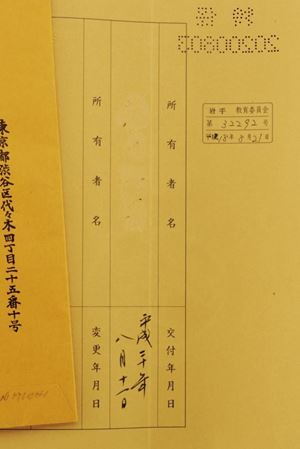 東京都渋谷区代々木四丁目二十五番十号
所有者名
所有者名
交付年月日
平成二十年
八月十一日
変更年月日
教育委員会
第 32292 号
平成 18年 8月 21日